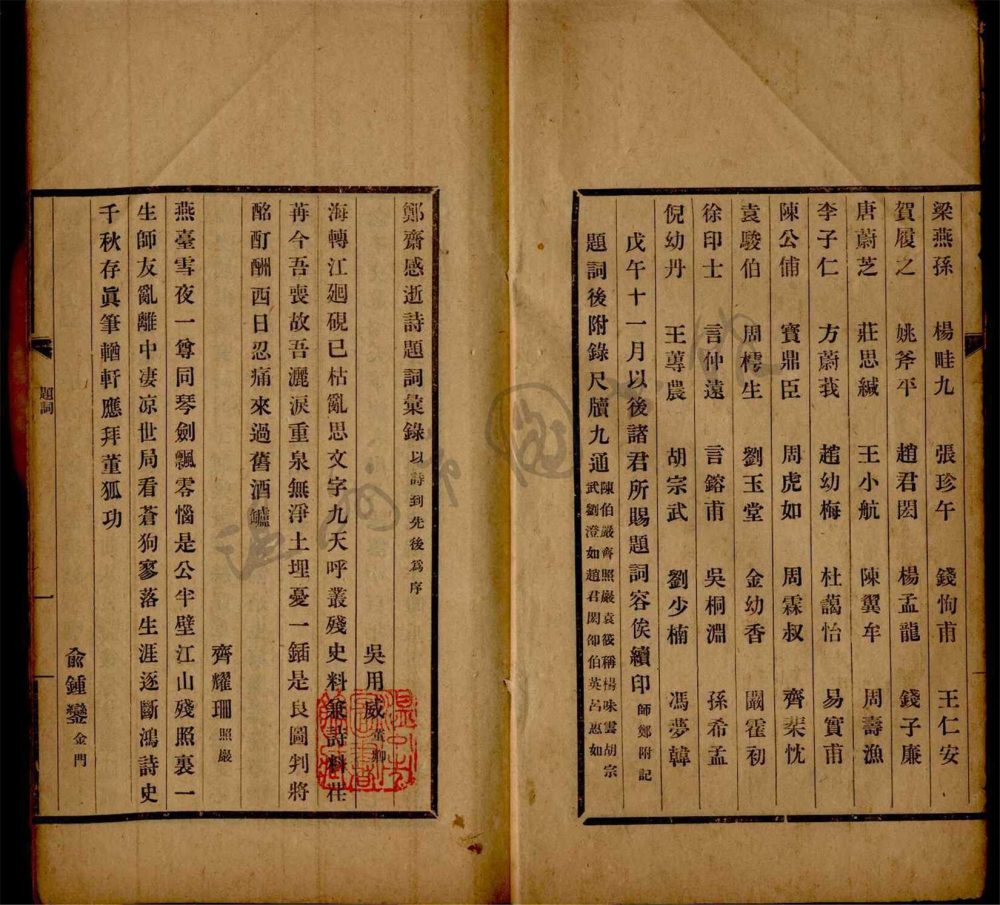 梁燕孫 楊畦九 張珍午 錢恂甫 王仁安
賀履之 姚斧平 趙君閎 楊孟龍 錢子廉
唐蔚芝 莊思緘 王小航 陳翼牟 周壽漁
李子仁 方蔚莪 趙幼梅 杜藹怡 易實甫
陳公俌 寶鼎臣 周虎如 周霖叔 齊枼忱
袁駿伯 周樗生 劉玉堂 金幼香 嚴霍初
徐印士 言仲遠 言鎔甫 吳桐淵 孫希孟
倪幼丹 王蓴農 胡宗武 劉少楠 馮夢韓
戊午十一月以後諸君所賜題詞容俟續印師鄭附記
題詞後附錄尺牘九通陳伯嚴齊照嚴袁筱稱楊味雲胡宗武劉澄如趙君閎邵伯英呂惠如
鄭齋感逝詩題詞彙錄以詩到先後爲序
吳用威董卿
海轉江廻硯已枯亂思文字九天呼叢殘史料兼詩料荏
苒今吾喪故吾灑淚重泉無淨土埋憂一鍤是良圖判將
酩酊酬西日忍痛來過舊酒罏
齊耀珊照巖
燕臺雪夜一尊同琴劍飄零惱是公半壁江山殘照裏一
生師友亂離中凄凉世局看蒼狗寥落生涯逐斷鴻詩史
千秋存眞筆輶軒應拜董狐功
俞鍾鑾金門
題詞
一